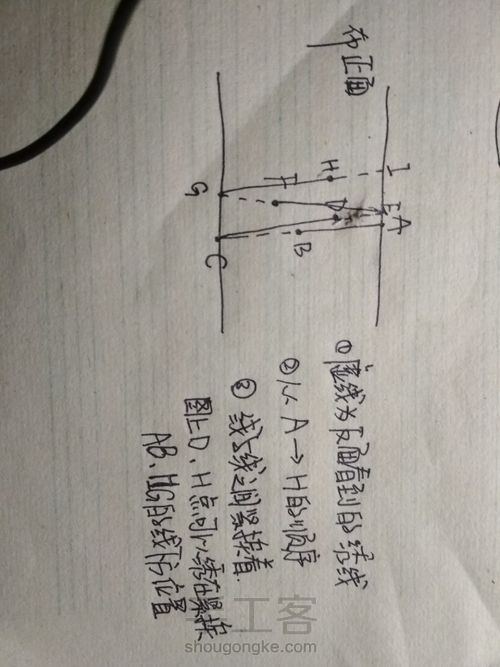 布正面
I
H
F
G
E
A
D
B
C
①虚线为反面看到的绣线
②从A→H的顺序
③线与线之间紧挨着.
图上D、H点可以绣在紧挨
AB、HG的线下位置
手工客
shougongke.com